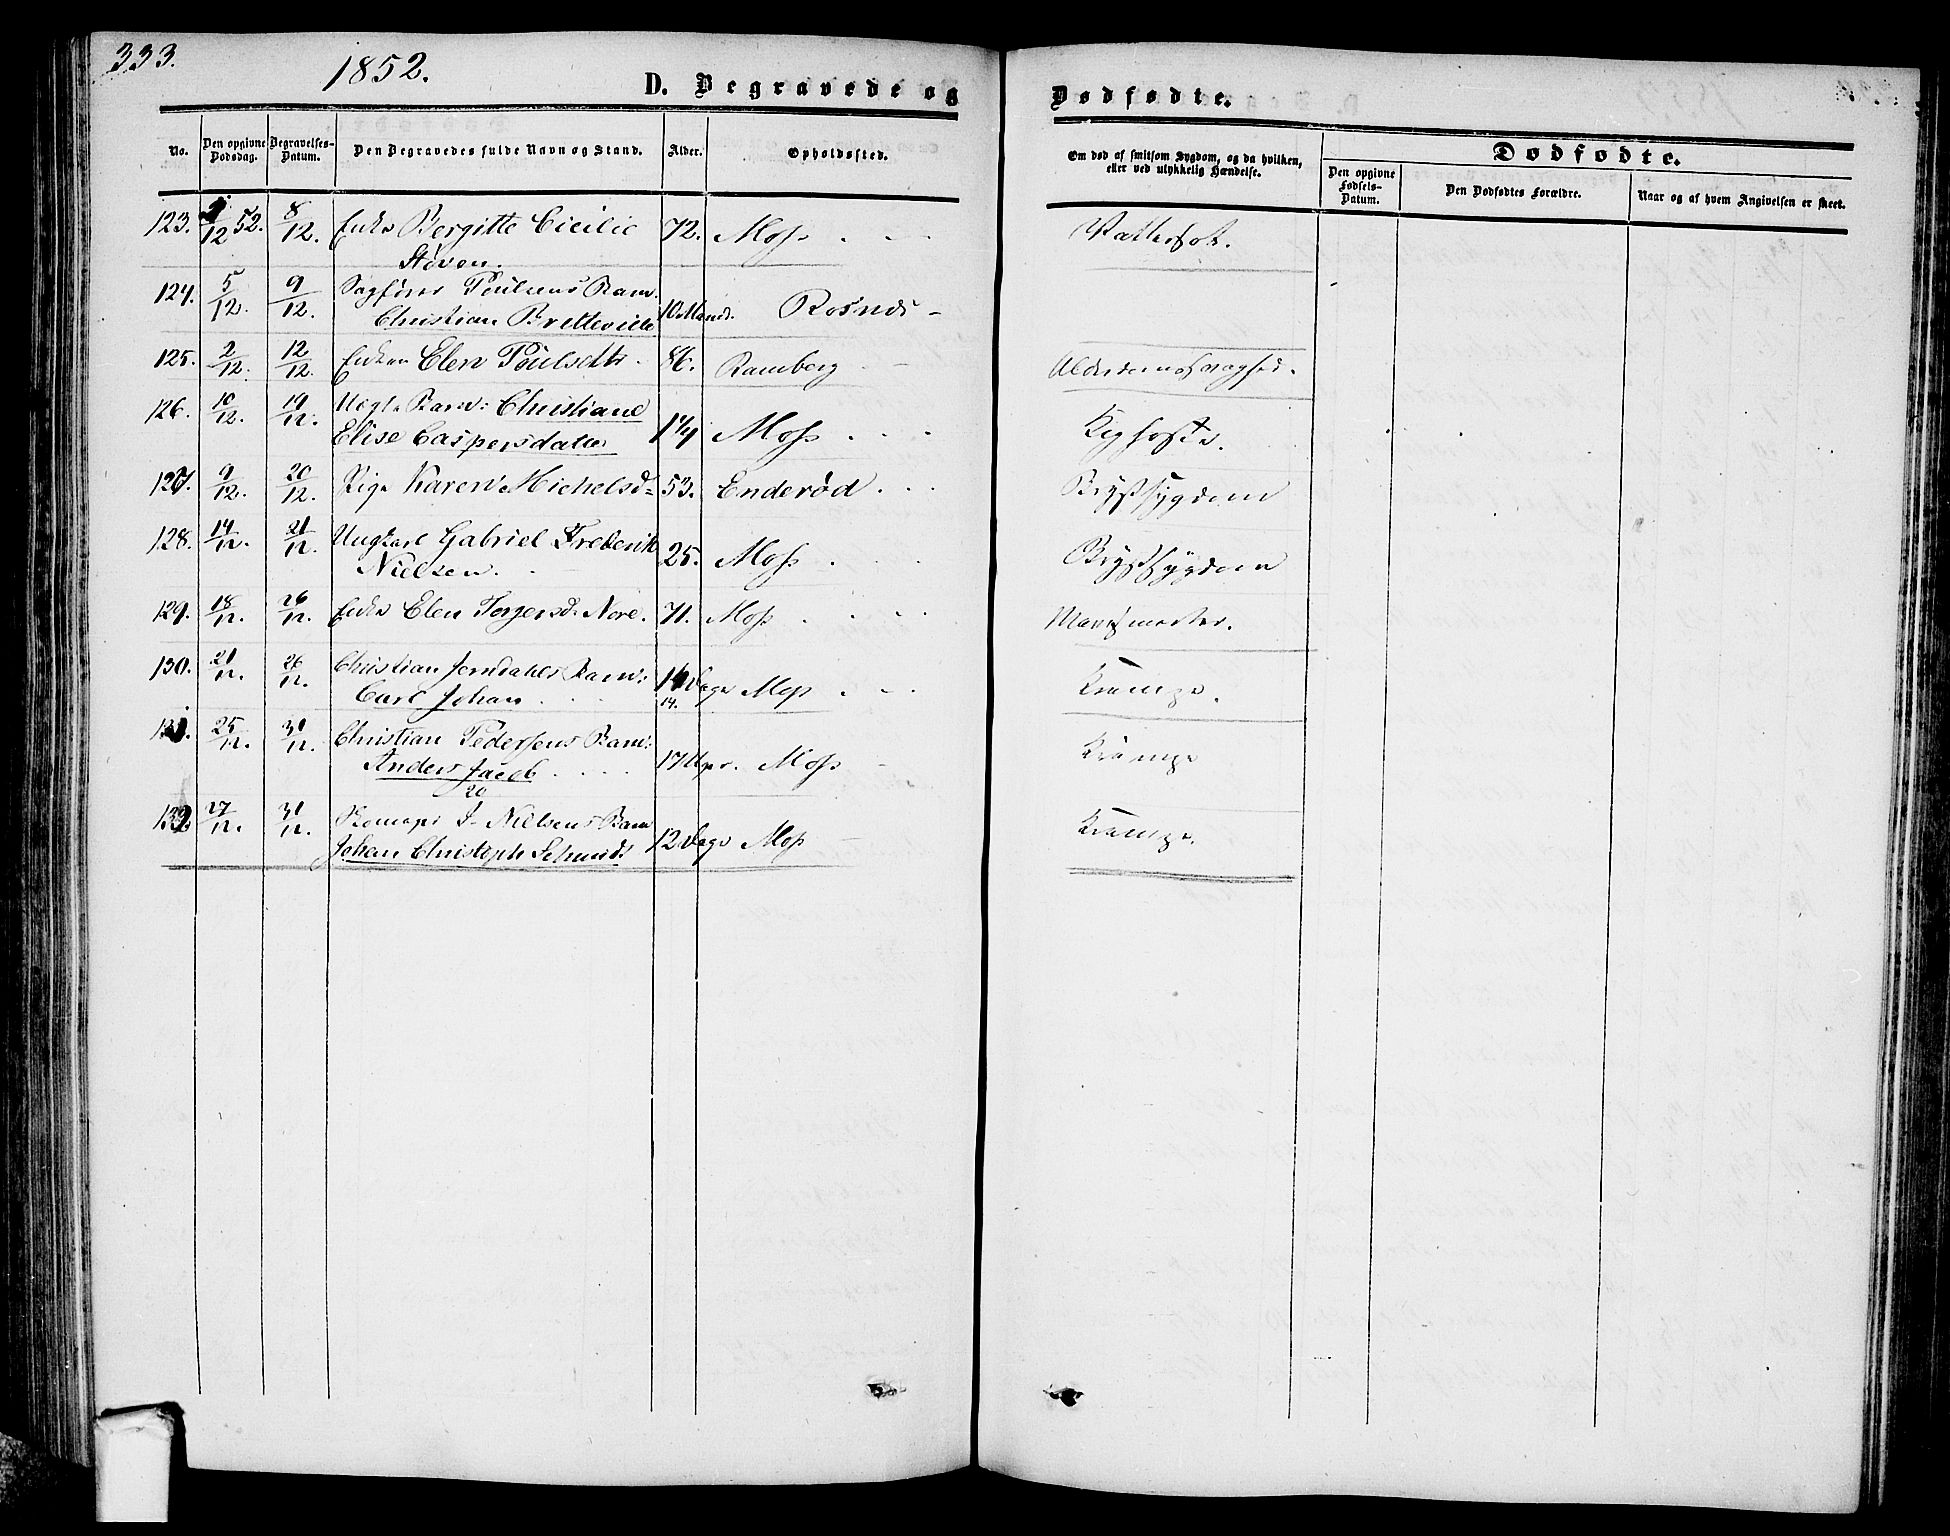 333.
1852.
D. Begravede og
Dødfødte.
No.
Den opgivne Dødsdag.
Begravelses-Datum.
Den Begravedes fulde Navn og Stand.
Alder.
Opholdssted.
Om død af smitsom Sygdom, og da hvilken, eller ved ulykkelig Hændelse.
Dødfødte.
Den opgivne Fødsels-Datum.
Den Dødfødtes Forældre.
Naar og af hvem Angivelsen er skeet.
123. /12 52. 8/12. Enke Bergitte Cicilie 72. Moss Vattersot.
Støven.
124. 5/12. 9/12. Sagfører Poulsens Barn
Christian Bretteville 10 Maand. Rosnes
125. 2/12. 12/12. Enken Elen Poulsdtr 86. Ramberg Alderdomssvaghed.
126. 10/12. 19/12. Uægte Barn: Christiane
Elise Caspersdatter 1 1/4 Moss Kighoste.
127. 9/12. 20/12. Pige Karen Michelsd= 53. Enderød Brystsygdom
128. 14/12. 21/12. Ungkarl Gabriel Frederik 25. Moss Brystsygdom
Nielsen.
129. 18/12. 26/12. Enke Elen Torgersd. Nore. 71. Moss
130. 21/12. 26/12. Christian Jerndahls Barn:
Carl Johan 14 Dage Moss Krampe.
14.
131. 25/12. 31/12. Christian Pedersens Barn:
Anders Jacob 17 Uger. Moss Krampe
20
132. 27/12. 31/12. J. Nielsens Barn
Johan Christoph Schmidt 12 Dage Moss Krampe.